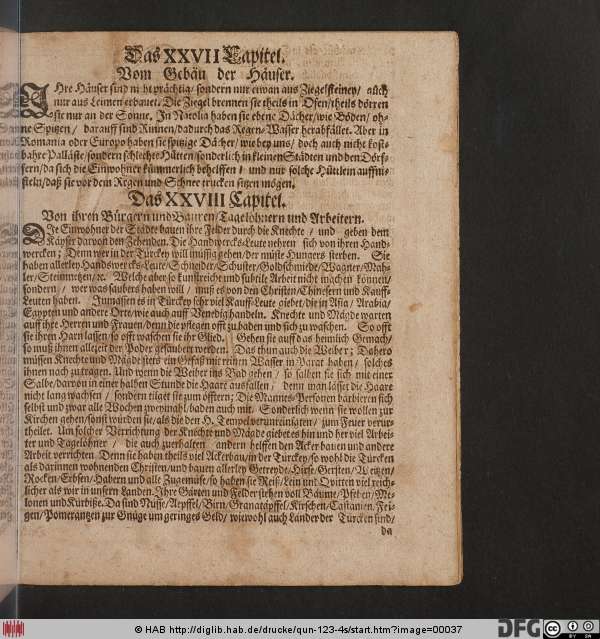 Das XXVII Capitel.
Vom Gebäu der Häuser.
IHre Häuser sind nicht prächtig/ sondern nur etwan aus Ziegelsteinen/ auch
nur aus Leimen erbauet. Die Ziegel brennen sie theils in Ofen/ theils dörren
sie nur an der Sonne. In Natolia haben sie ebene Dächer/ wie Böden/ oh-
ne Spitzen/ darauff sind Rinnen/ dadurch das Regen-Wasser herabfället. Aber in
Romania oder Europo haben sie spitzige Dächer/ wie bey uns/ doch auch nicht kost-
bahre Palläste/ sondern schlechte Hütten/ sonderlich in kleinen Städten und den Dörf-
fern/ da sich die Einwohner kümmerlich behelffen/ und nur solche Hüttlein auffni-
steln/ daß sie vor dem Regen und Schnee trucken sitzen mögen.
Das XXVIII Capitel.
Von ihren Bürgern und Bauren/ Tagelöhnern und Arbeitern.
DIe Einwohner der Städte bauen ihre Felder durch die Knechte/ und geben dem
Käyser darvon den Zehenden. Die Handwercks-Leute nehren sich von ihren Hand-
wercken; Denn wer in der Türckey will müssig gehen/ der müste Hungers sterben. Sie
haben allerley Handwercks-Leute/ Schneider/ Schuster/ Goldschmiede/ Wagner/ Mah-
ler/ Steinmetzen/ &c. Welche aber so kunstreiche und subtile Arbeit nicht machen können/
sondern/ wer was saubers haben will/ muß es von den Christen/ Chinesern und Kauff-
Leuten haben. Inmassen es in Türckey sehr viel Kauff-Leute giebet/ die in Asia/ Arabia/
Egypten und andere Orte/ wie auch auff Venedig handeln. Knechte und Mägde warten
auff ihre Herren und Frauen/ denn die pflegen offt zu baden und sich zu waschen. So offt
sie ihren Harn lassen/ so offt waschen sie ihr Glied. Gehen sie auff das heimlich Gemach/
so muß ihnen allezeit der Poder gesaubert werden. Das thun auch die Weiber; Dahero
müssen Knechte und Mägde stets ein Gefäß mit reinen Wasser in Parat haben/ solches
ihnen nach zu tragen. Und wenn die Weiber ins Bad gehen/ so salben sie sich mit einer
Salbe/ darvon in einer halben Stunde die Haare ausfallen/ denn man lässet die Haare
nicht lang wachsen/ sondern tilget sie zum öfftern; Die Mannes-Personen barbieren sich
selbst und zwar alle Wochen zweymahl/ baden auch mit. Sonderlich wenn sie wollen zur
Kirchen gehen/ sonst würden sie/ als die den H. Tempel verunreinigten/ zum Feuer verur-
theilet. Um solcher Verrichtung der Knechte und Mägde giebet es hin und her viel Arbei-
ter und Tagelöhner/ die auch zuerhalten andern helffen den Acker bauen und andere
Arbeit verrichten. Denn sie haben theils viel Ackerbau/ in der Türckey/ so wohl die Türcken
als darinnen wohnenden Christen/ und bauen allerley Getreyde/ Hirse/ Gersten/ Weitzen/
Rocken/ Erbsen/ Habern und alle Zugemüse/ so haben sie Reiß/ Lein und Quitten viel reich-
licher als wir in unsern Landen. Ihre Gärten und Felder stehen voll Bäume/ Pfeben/ Me-
lonen und Kürbiße. Da sind Nüsse/ Aepffel/ Birn/ Granatäpffel/ Kirschen/ Castanien/ Fei-
gen/ Pomerantzen zur Gnüge um geringes Geld/ wiewohl auch Länder der Türcken sind/
da
© HAB http://diglib.hab.de/drucke/qun-123-4s/start.htm?image=00037
DFG
CC
BY SA